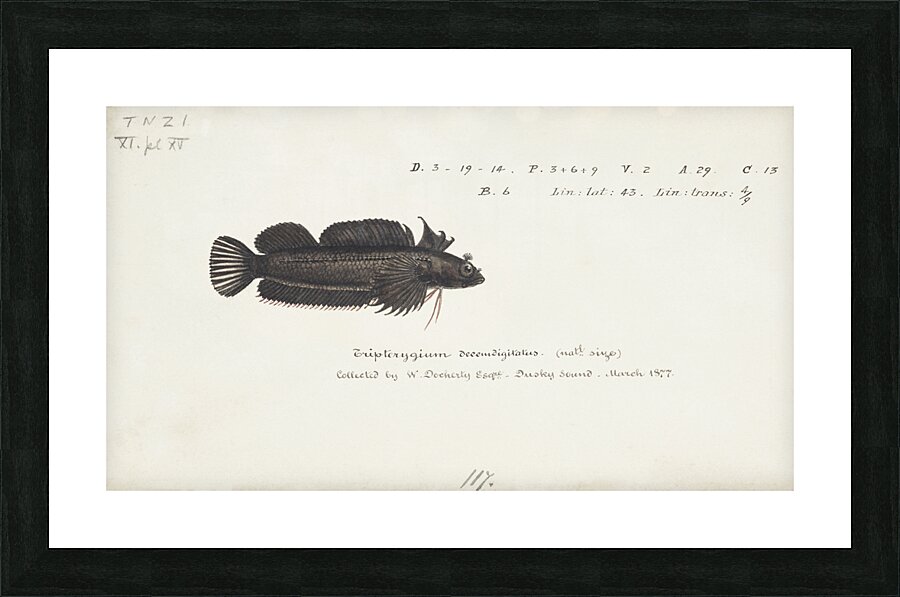 T N Z I.
XI. pl XV
D. 3 - 19 - 14. P. 3+6+9 V. 2 A. 29. C. 13
B. 6 Lin: lat: 43. Lin: trans: 4/9
Tripterygium decemdigitatus. (natl. size)
Collected by W. Docherty Esqre - Dusky Sound - March 1877.
117.